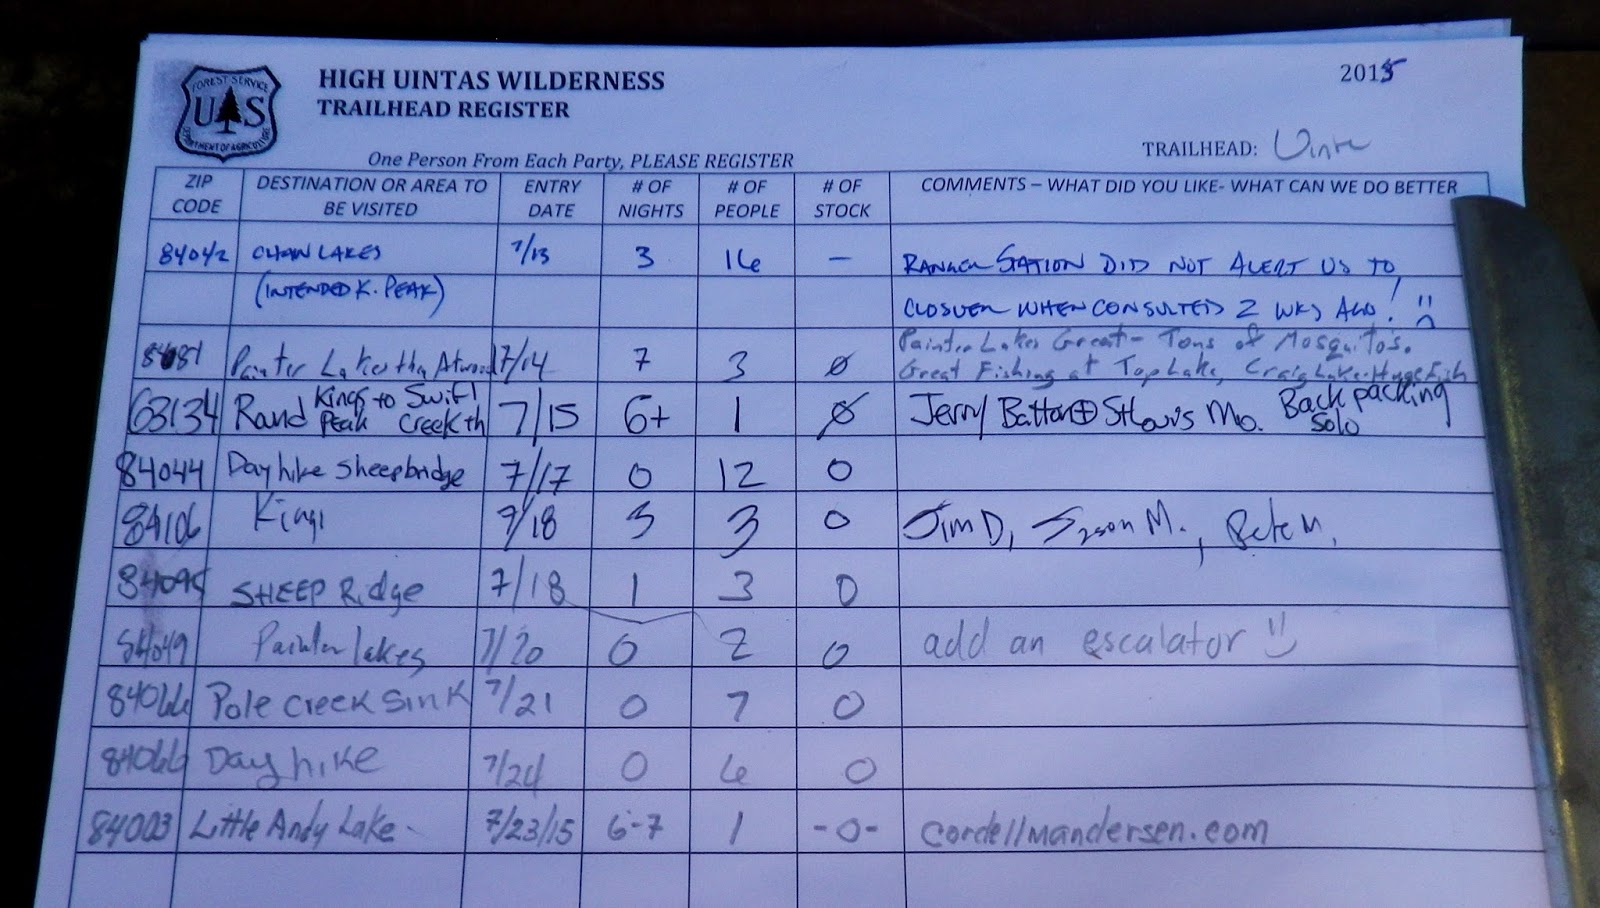 FOREST SERVICE
U S
DEPARTMENT OF AGRICULTURE
HIGH UINTAS WILDERNESS
TRAILHEAD REGISTER
2015
One Person From Each Party, PLEASE REGISTER
TRAILHEAD: Uinta
ZIP CODE DESTINATION OR AREA TO BE VISITED ENTRY DATE # OF NIGHTS # OF PEOPLE # OF STOCK COMMENTS – WHAT DID YOU LIKE- WHAT CAN WE DO BETTER
84042 CHAIN LAKES 7/13 3 16 — RANGER STATION DID NOT ALERT US TO
(INTENDED K. PEAK) CLOSUER WHEN CONSULTED 2 WKS AGO!
Painter Lakes Great - Tons of Mosquito's.
Painter Lakes thru Atwood 7/14 7 3 Ø Great Fishing at Top Lake, Craig Lake - Huge Fish
63134 Rand Kings Peak to Swift Creek th 7/15 6+ 1 Ø Jerry Batton St Louis Mo. Backpacking Solo
84044 Day hike Sheepbridge 7/17 0 12 0
84106 Kings 7/18 3 3 0 Jim D, Jason M., Pete M,
84095 SHEEP Ridge 7/18 1 3 0
84049 Painter lakes 7/20 0 2 0 add an escalator
84066 Pole Creek Sink 7/21 0 7 0
84066 Day hike 7/24 0 6 0
84003 Little Andy Lake - 7/23/15 6-7 1 -0- cordellmandersen.com